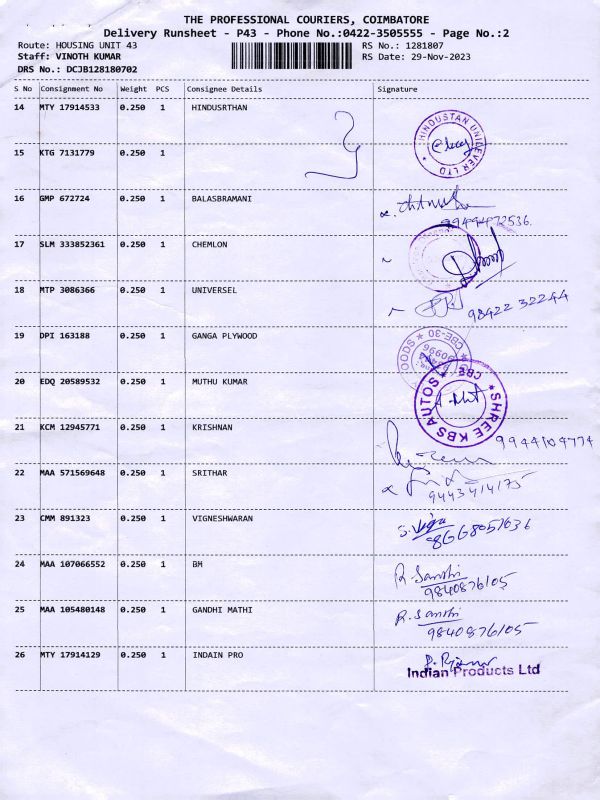 THE PROFESSIONAL COURIERS, COIMBATORE
Delivery Runsheet - P43 - Phone No.:0422-3505555 - Page No.:2
Route: HOUSING UNIT 43 RS No.: 1281807
Staff: VINOTH KUMAR RS Date: 29-Nov-2023
DRS No.: DCJB128180702
S No Consignment No Weight PCS Consignee Details Signature
14 MTY 17914533 0.250 1 HINDUSRTHAN
HINDUSTAN UNILEVER LTD
15 KTG 7131779 0.250 1
16 GMP 672724 0.250 1 BALASBRAMANI
9949472536
17 SLM 333852361 0.250 1 CHEMLON
18 MTP 3086366 0.250 1 UNIVERSEL
98422 32244
19 DPI 163188 0.250 1 GANGA PLYWOOD
CBE-30
20 EDQ 20589532 0.250 1 MUTHU KUMAR
SHREE KBS AUTOS CBE
21 KCM 12945771 0.250 1 KRISHNAN
9944109774
22 MAA 571569648 0.250 1 SRITHAR
9443414175
23 CMM 891323 0.250 1 VIGNESHWARAN
8668051636
24 MAA 107066552 0.250 1 BM
R. Santhi
9840876105
25 MAA 105480148 0.250 1 GANDHI MATHI
R. Santhi
9840876105
26 MTY 17914129 0.250 1 INDAIN PRO
Indian Products Ltd